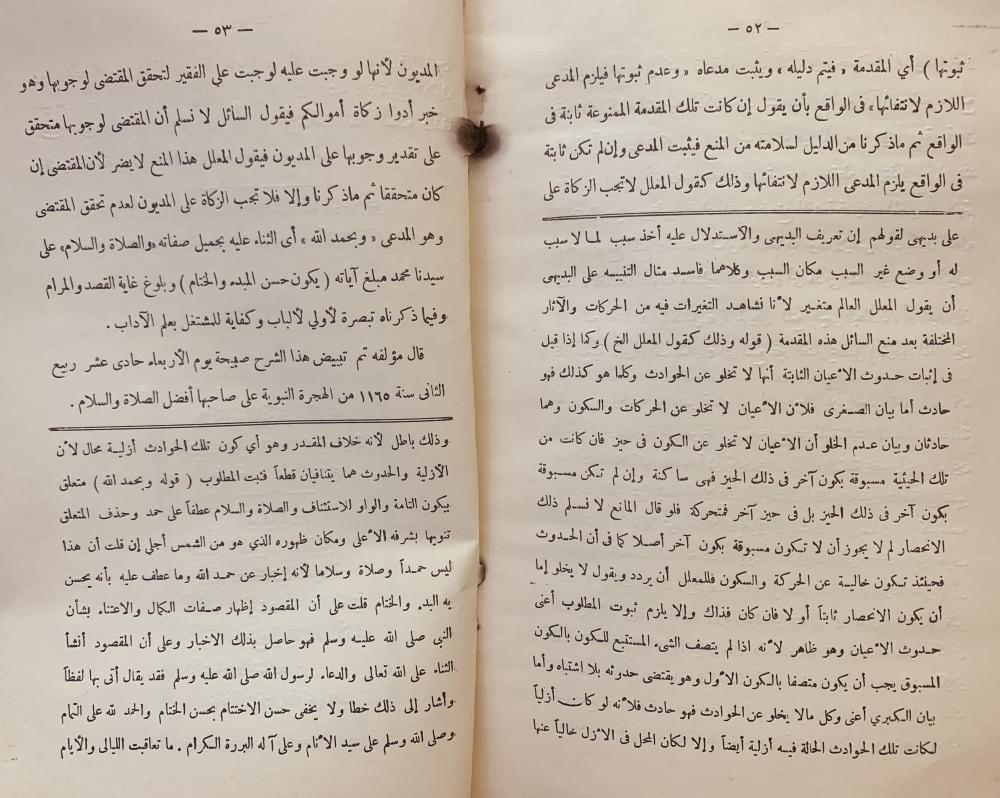 — ٥٢ —
ثبوتها ) أي المقدمة « فيتم دليله » ويثبت مدعاه « وعدم ثبوتها فيلزم المدعى
اللازم لانتفائها » فى الواقع بأن يقول إن كانت تلك المقدمة الممنوعة ثابتة فى
الواقع ثم ماذكرنا من الدليل لسلامته من المنع فيثبت المدعى وإن لم تكن ثابتة
فى الواقع يلزم المدعى اللازم لانتفائها وذلك كقول المعلل لاتجب الزكاة على
على بديهى لقولهم إن تعريف البديهى والاستدلال عليه أخذ سبب لما لا سبب
له أو وضع غير السبب مكان السبب وكلاهما فاسد مثال التنبيه على البديهى
أن يقول المعلل العالم متغير لأنا نشاهد التغيرات فيه من الحركات والآثار
المختلفة بعد منع السائل هذه المقدمة ( قوله وذلك كقول المعلل الخ ) وكما إذا قيل
فى إثبات حدوث الأعيان الثابتة أنها لا تخلو عن الحوادث وكلما هو كذلك فهو
حادث أما بيان الصغرى فلأن الأعيان لا تخلو عن الحركات والسكون وهما
حادثان وبيان عدم الخلو أن الاعيان لا تخلو عن الكون فى حيز فان كانت من
تلك الحيثية مسبوقة بكون آخر فى ذلك الحيز فهى ساكنة وإن لم تكن مسبوقة
بكون آخر فى ذلك الحيز بل فى حيز آخر فمتحركة فلو قال المانع لا نسلم ذلك
الانحصار لم لا يجوز أن لا تكون مسبوقة بكون آخر أصلا كما فى أن الحدوث
فحينئذ تكون خالية عن الحركة والسكون فللمعلل أن يردد ويقول لا يخلو إما
أن يكون الانحصار ثابتاً أو لا فان كان فذاك وإلا يلزم ثبوت المطلوب أعنى
حدوث الأعيان وهو ظاهر لأنه اذا لم يتصف الشىء المستتبع للكون بالكون
المسبوق يجب أن يكون متصفا بالكون الأول وهو يقتضى حدوثه بلا اشتباه وأما
بيان الكبرى أعنى وكل مالا يخلو عن الحوادث فهو حادث فلأنه لو كان أزلياً
لكانت تلك الحوادث الحالة فيه أزلية أيضاً وإلا لكان المحل فى الازل خالياً عنها
— ٥٣ —
المديون لأنها لو وجبت عليه لوجبت علي الفقير لتحقق المقتضى لوجوبها وهو
خبر أدوا زكاة أموالكم فيقول السائل لا نسلم أن المقتضى لوجوبها متحقق
على تقدير وجوبها على المديون فيقول المعلل هذا المنع لايضر لأن المقتضى إن
كان متحققا ثم ماذكرنا وإلا فلا تجب الزكاة على المديون لعدم تحقق المقتضى
وهو المدعى « وبحمد الله » أى الثناء عليه بجميل صفاته «والصلاة والسلام» على
سيدنا محمد مبلغ آياته ( يكون حسن المبدء والختام ) وبلوغ غاية القصد والمرام
وفيما ذكرناه تبصرة لأولي لألباب وكفاية للمشتغل بعلم الآداب .
قال مؤلفه تم تبييض هذا الشرح صبيحة يوم الأربعاء حادى عشر ربيع
الثانى سنة ١١٦٥ من الهجرة النبوية على صاحبها أفضل الصلاة والسلام .
وذلك باطل لأنه خلاف المقدر وهو أي كون تلك الحوادث أزلية محال لأن
الأزلية والحدوث هما يتنافيان قطعاً فثبت المطلوب ( قوله وبحمد الله ) متعلق
بيكون التامة والواو للاستئناف والصلاة والسلام عطفاً على حمد وحذف المتعلق
تنويها بشرفه الأعلى ومكان ظهوره الذي هو من الشمس أجلي إن قلت أن هذا
ليس حمداً وصلاة وسلاما لأنه إخبار عن حمد الله وما عطف عليه بأنه يحسن
به البدء والختام قلت على أن المقصود إظهار صفات الكمال والاعتناء بشأن
النبي صلى الله عليه وسلم فهو حاصل بذلك الاخبار وعلى أن المقصود أنشأ
الثناء على الله تعالى والدعاء لرسول الله صلى الله عليه وسلم فقد يقال أتى بها لفظاً
وأشار إلى ذلك خطا ولا يخفى حسن الاختتام بحسن الختام والحمد لله على التمام
وصلى الله وسلم على سيد الأنام وعلى آله البررة الكرام . ما تعاقبت الليالى والأيام